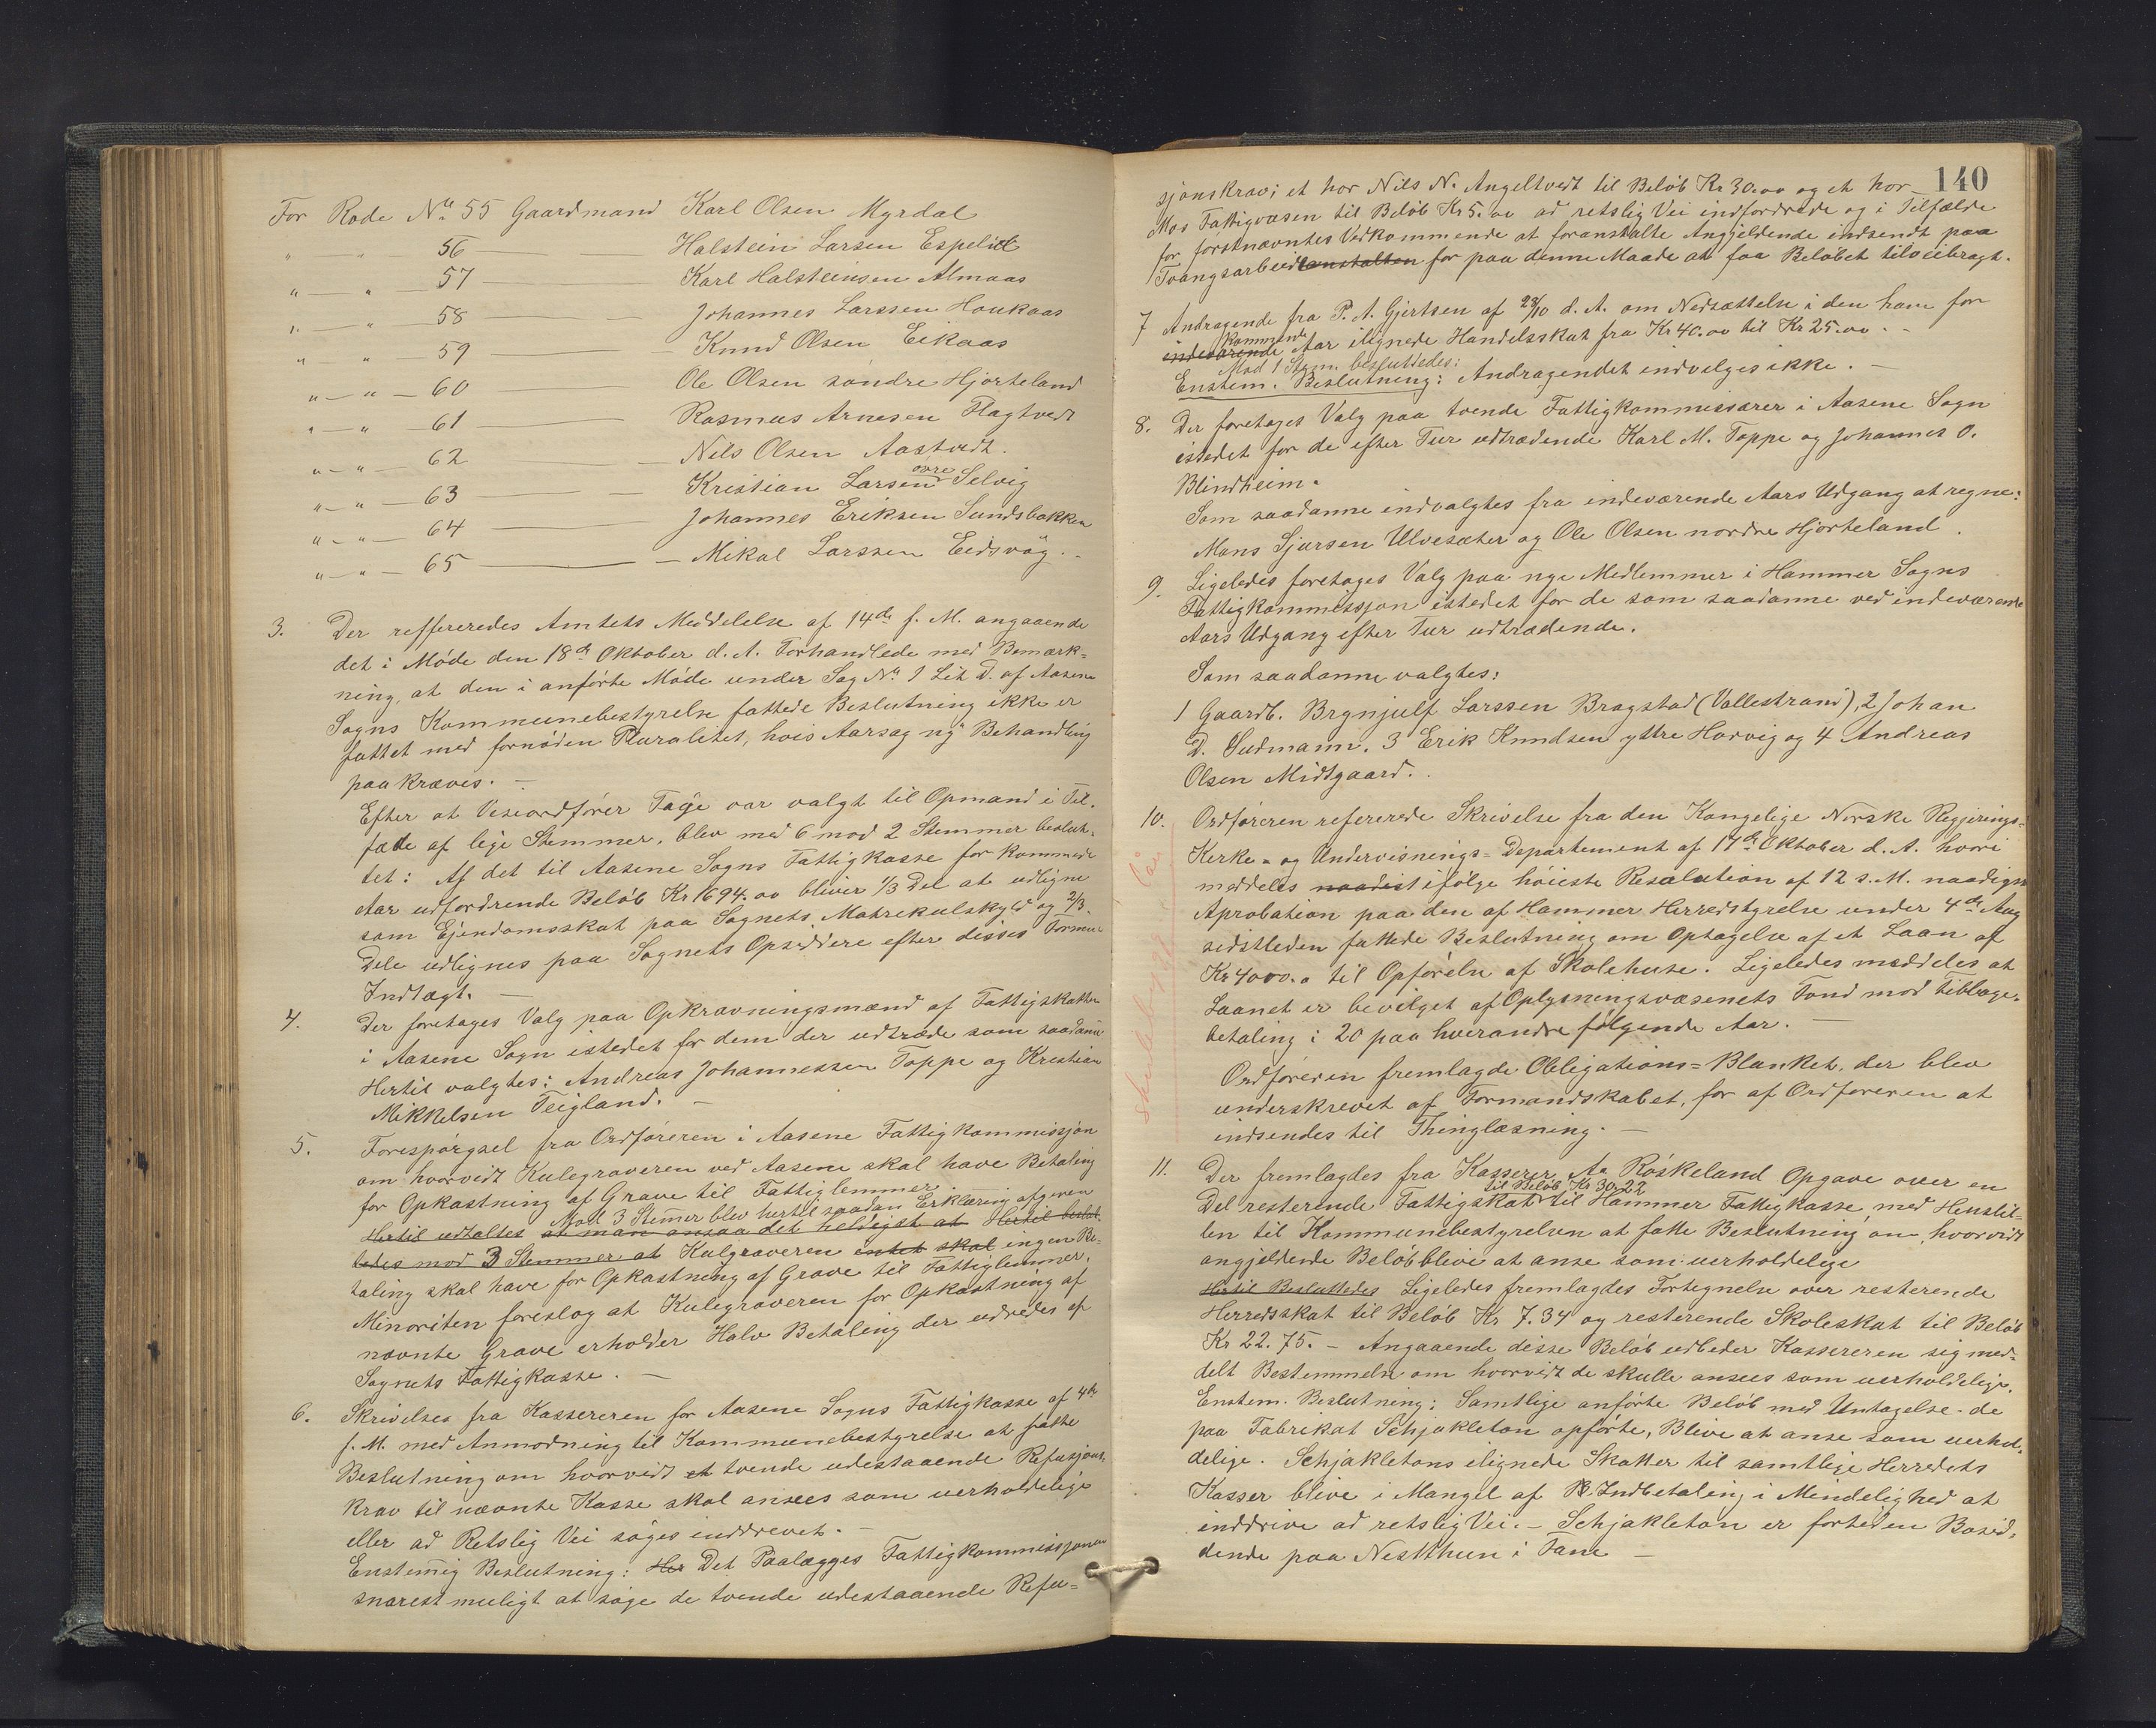 For Rode No 55 Gaardmand Karl Olsen Myrdal
" " 56 — — Halstein Larsen Espelid
" — " 57 — — Karl Halsteinsen Almaas
" — " 58 — — Johannes Larssen Haukaas
" " — 59 — Knud Olsen Eikaas
" — " — 60 — Ole Olsen søndre Hjorteland
" — " — 61 — Rasmus Arnesen Flagtvedt
" — " — 62 — Nils Olsen Aastvedt.
" — " — 63 — Kristian Larsen øvre Selvig
" — " — 64 — Johannes Eriksen Sundsbakken
" — " — 65 — Mikal Larssen Eidsvåg. -
3. Der reffereredes Amtets Meddelelse af 14de f. M. angaaende
det i Møde den 18de Oktober d. A. Forhandlede med Bemærk=
ning, at den i anførte Møde under Sag No 1 Lit D. af Aasene
Sogns Kommunebestyrelse fattede Beslutning ikke er
fattet med fornøden Pluralitet, hvis Aarsag ny Behandling
paakræves. —
Efter at Viseordfører Tage var valgt til Opmand i Til.
fælde af lige Stemmer, blev med 6 mod 2 Stemmer beslut.
tet: Af det til Aasene Sogns Fattigkasse for kommende
Aar udfordrende Beløb Kr 1694.00 bliver 1/3 Del at udligne
som Ejendomsskat paa Sognets Matrikulskyld og 2/3.
Dele udlignes paa Sognets Opsiddere efter disses Formue
Indtægt. —
4. Der foretages Valg paa Opkrævningsmænd af Fattigskatten
i Aasene Sogn istedet for dem der udtræde som saadanne
Hertil valgtes: Andreas Johannessen Toppe og Kristian
Mikkelsen Teigland. —
5. Forespørgsel fra Ordføreren i Aasene Fattigkommissjon
om hvorvidt Kulegraveren ved Aasene skal have Betaling
for Opkastning af Grave til Fattiglemmer.
Mod 3 Stemmer blev hertil saadan Erklæring afgiven
Hertil udtaltes at man ansaa det heldigst at Hertil beslut.
tedes mod 3 Stemmer at Kulgraveren intet skal ingen Be-
taling skal have for Opkastning af Grave til Fattiglemmer.
Minoriten foreslog at Kulegraveren for Opkastning af
nævnte Grave erholder Halv Betaling der udredes af
Sognets Fattigkasse. —
6. Skrivelse fra Kassereren for Aasene Sogns Fattigkasse af 4de
f. M. med Anmodning til Kommunebestyrelse at fatte
Beslutning om hvorvidt et tvende udestaaende Refusjons.
krav til nævnte Kasse skal ansees som uerholdelige
eller ad Retslig Vei søges inddrevet. —
Enstemig Beslutning: Her Det Paalægges Fattigkommissjonen
snarest muligt at søge de tvende udestaaende Refu=
140
sjonskrav; et hos Nils N. Angeltvedt til Beløb Kr 30.00 og et hos
Mos Fattigvæsen til Beløb Kr 5.00 ad retslig Vei indfordrede og i Tilfælde
for førstnævntes Vedkommende at foranstalte Angjeldende indsendt paa
Tvangsarbeidsanstalten for paa denne Maade at faa Beløbet tilveiebragt.
7 Andragende fra P. A. Gjertsen af 28/10 d. A. om Nedsættelse i den ham for
kommende
indeværende Aar ilignede Handelsskat fra Kr 40.00 til Kr 25.00. -
Mod 1 Stem. besluttedes:
Enstem. Beslutning: Andragendet indvilges ikke. —
8. Der foretages Valg paa tvende Fattigkommissærer i Aasene Sogn
istedet for de efter Tur udtrædende Karl M. Toppe og Johannes O.
Blindheim.
Som saadanne indvalgtes fra indeværende Aars Udgang at regne:
Mons Sjursen Ulvesæter og Ole Olsen nordre Hjorteland.
9. Ligeledes foretages Valg paa nye Medlemmer i Hammer Sogns
Fattigkommissjon istedet for de som saadanne ved indeværende
Aars Udgang efter Tur udtrædende.
Som saadanne valgtes:
1 Gaardb. Brynjulf Larssen Bragstad (Vallestrand), 2 Johan
D. Sudmann. 3 Erik Knudsen yttre Horvig og 4 Andreas
Olsen Midtgaard. .
10. Ordføreren refererede Skrivelse fra den Kongelige Norske Regjerings=
Kerke- og Undervisnings=Departement af 17de Oktober d. A. hvori
meddeles naadist ifølge høieste Resolution af 12 s. M. naadigst
Aprobation paa den af Hammer Herredstyrelse under 4de Aug
sidstleden fattede Beslutning om Optagelse af et Laan af
Kr 4000.0 til Opførelse af Skolehuse. Ligeledes meddeles at
Laanet er bevilget af Oplysningsvæsenets Fond mod Tilbage.
betaling i 20 paa hverandre følgende Aar. —
Ordføreren fremlagde Obligations=Blanket, der blev
underskrevet af Formandskabet, for af Ordføreren at
indsendes til Thinglæsning. —
11. Der fremlagdes fra Kasserer A. Røskeland Opgave over en
til Beløb Kr 30.22
Del resterende Fattigskat til Hammer Fattigkasse, med Henstil=
len til Kommunebestyrelsen at fatte Beslutning om, hvorvidt
angjeldende Beløb blive at anse som uerholdelige
Hertil Besluttedes Ligeledes fremlagdes Fortegnelse over resterende
Herredsskat til Beløb Kr 7.34 og resterende Skoleskat til Beløb
Kr 22.75. — Angaaende disse Beløb udbeder Kassereren sig med=
delt Bestemmelse om hvorvidt de skulle ansees som uerholdelige.
Enstem. Beslutning: Samtlige anførte Beløb med Untagelse de
paa Fabrikat Schjakleton opførte, Blive at anse som uerhol.
delige. Schjakletons ilignede Skatter til samtlige Herredets
Kasser blive i Mangel af Indbetaling i Mindelighed at
inddrive ad retslig Vei. — Schjakleton er fortiden Bosid.
dende paa Nestthun i Fane —